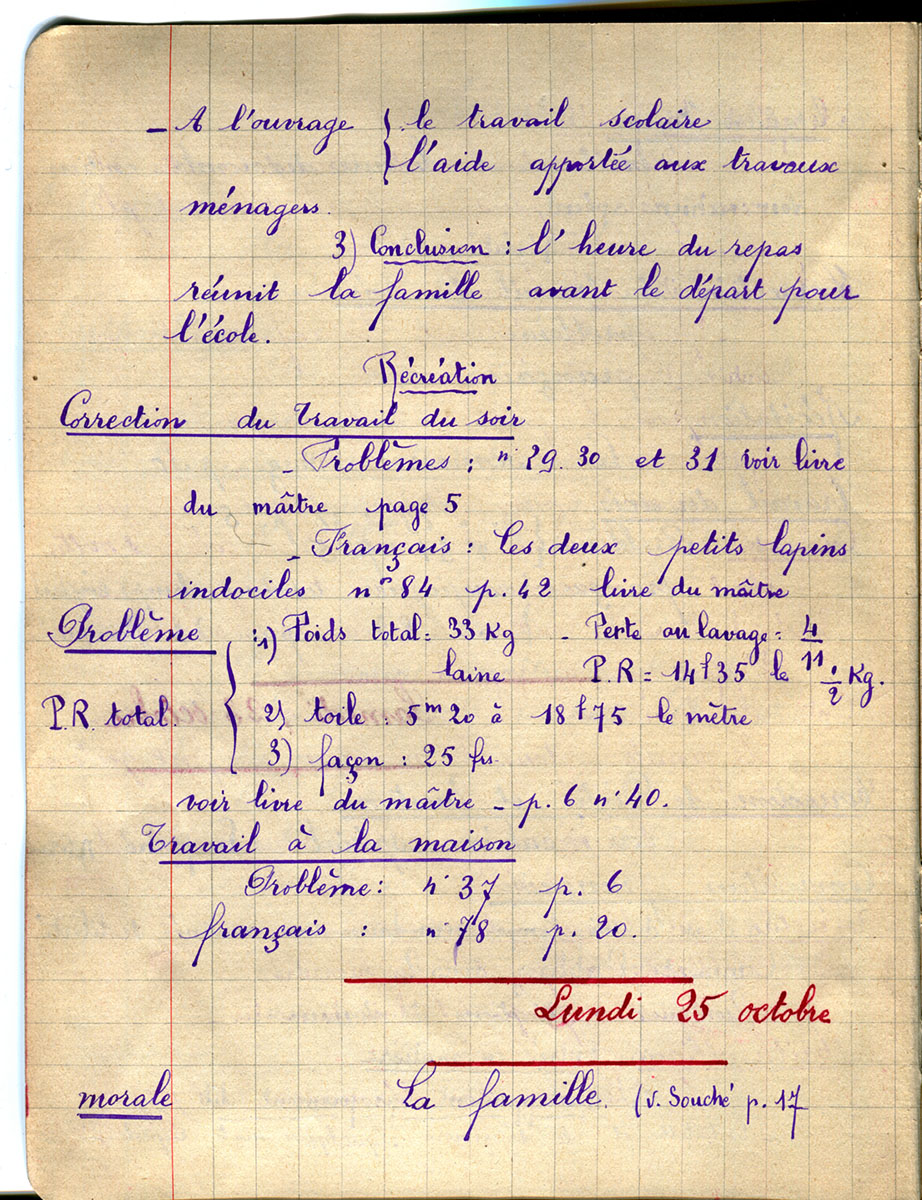 - A l'ouvrage { le travail scolaire
l'aide apportée aux travaux
ménagers.
3) Conclusion : l'heure du repas
réunit la famille avant le départ pour
l'école.
Récréation
Correction du Travail du soir
- Problèmes : n° 29. 30 et 31 voir livre
du maître page 5
- Français : Les deux petits lapins
indociles n° 84 p. 42 livre du maître
Problème : 1) Poids total = 33 Kg - Perte au lavage = 4/11
laine P.R = 14f35 le 1/2 Kg.
P.R. total. 2) toile : 5m20 à 18f75 le mètre
3) façon : 25 frs.
voir livre du maître - p. 6 n° 40.
Travail à la maison
Problème : n° 37 p. 6
français : n° 78 p. 20.
Lundi 25 octobre
morale La famille. (v. Souché p. 17